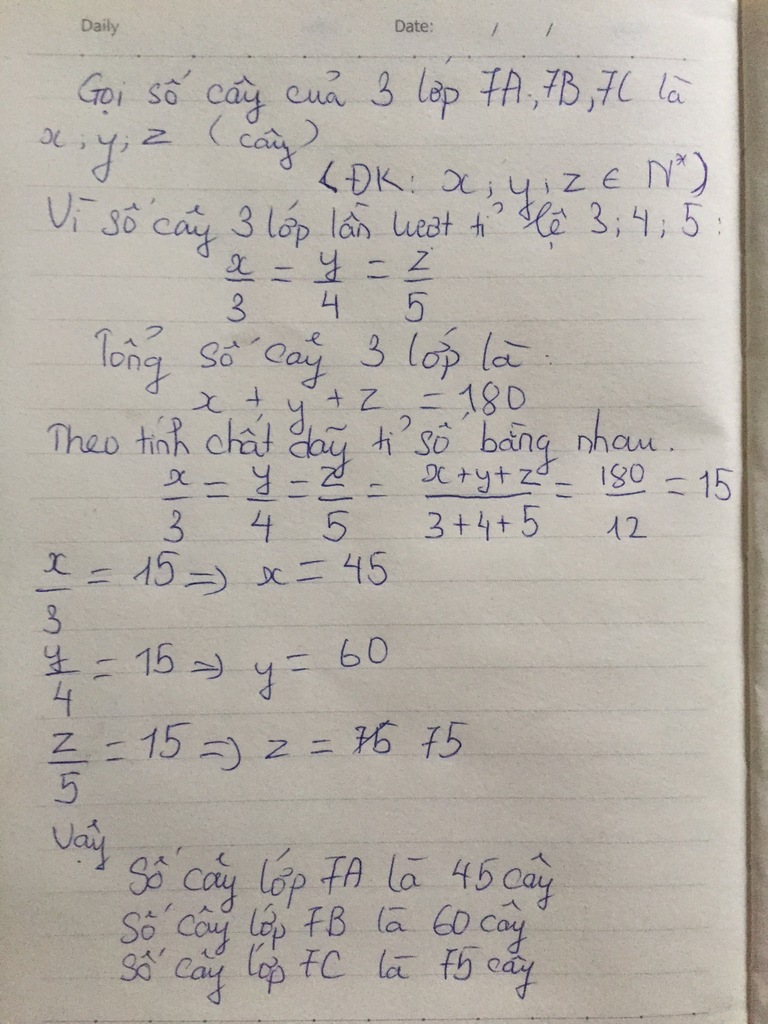 Daily Date: / /
Gọi số cây của 3 lớp 7A, 7B, 7C là
x; y; z (cây)
(ĐK: x; y; z ∈ N*)
Vì số cây 3 lớp lần lượt tỉ lệ 3; 4; 5:
x/3 = y/4 = z/5
Tổng số cây 3 lớp là:
x + y + z = 180
Theo tính chất dãy tỉ số bằng nhau.
x/3 = y/4 = z/5 = (x+y+z)/(3+4+5) = 180/12 = 15
x/3 = 15 => x = 45
y/4 = 15 => y = 60
z/5 = 15 => z = 75
Vậy
Số cây lớp 7A là 45 cây
Số cây lớp 7B là 60 cây
Số cây lớp 7C là 75 cây